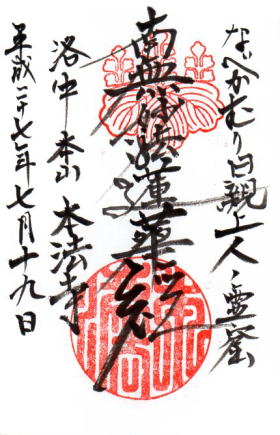 なべかむり日親上人霊窟
南無妙法蓮華経
洛中 本山 本法寺
平成二十七年七月十九日